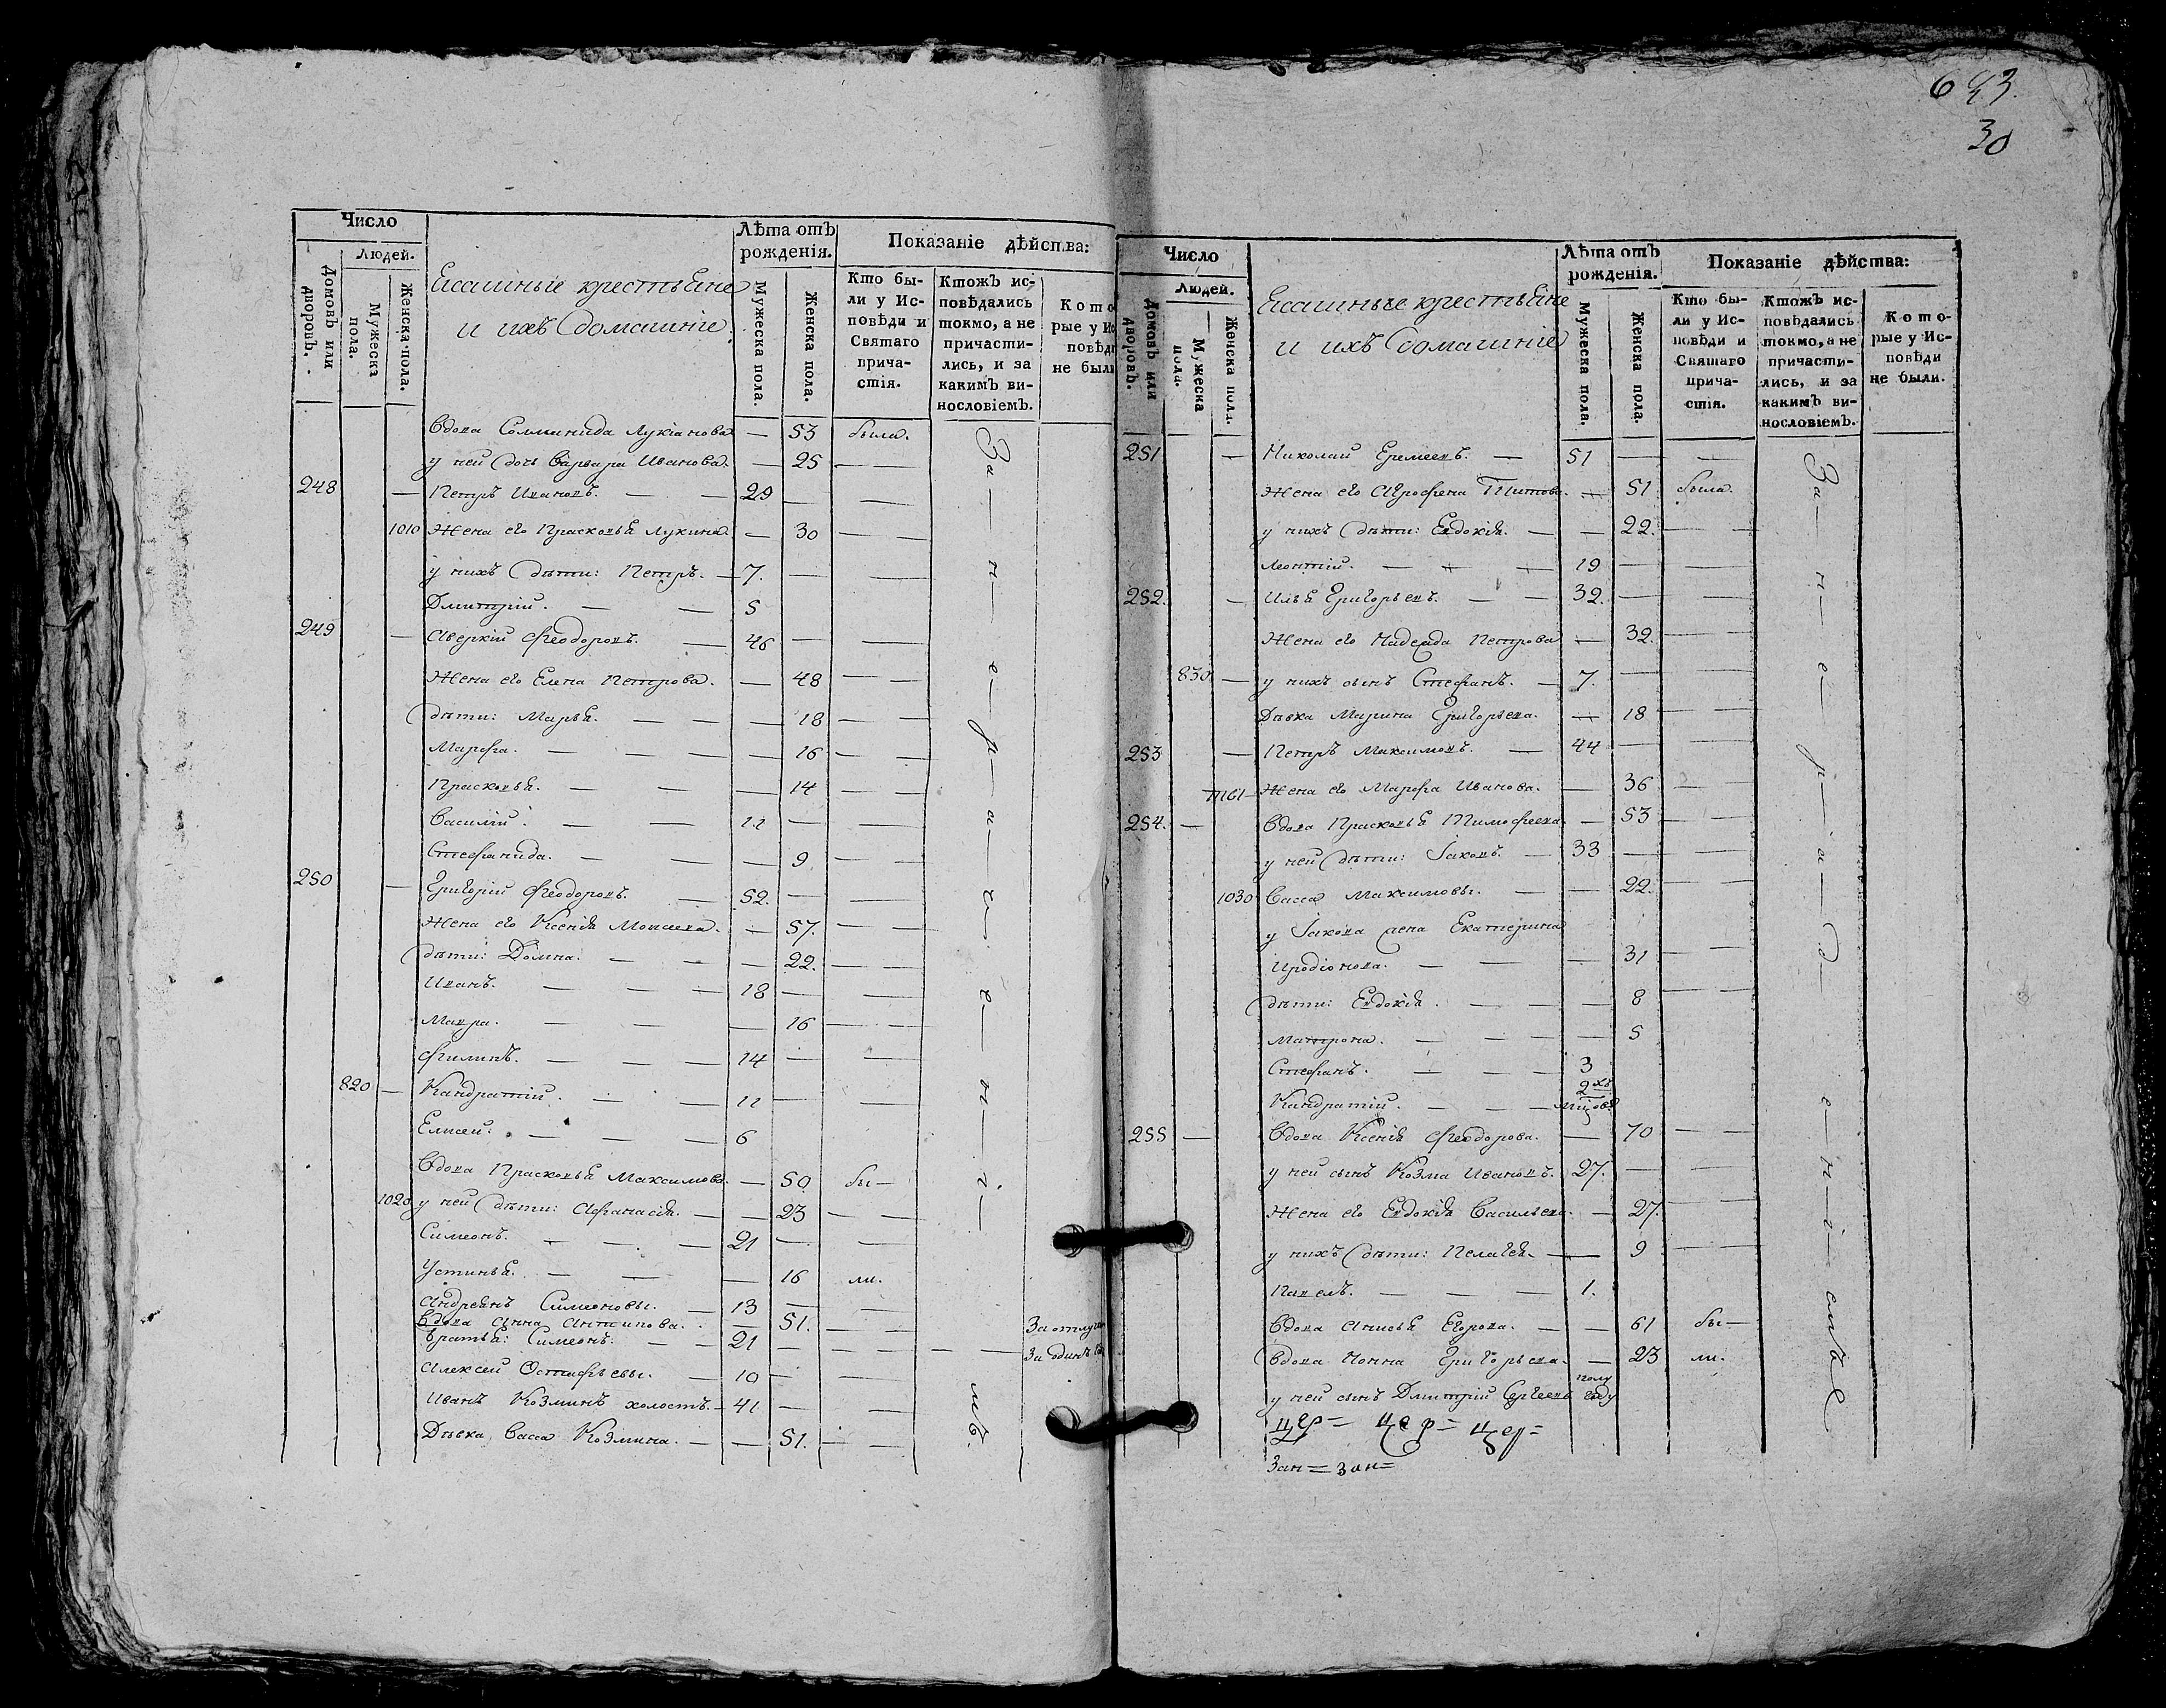 643.
30
Число
Людей.
Домовъ или дворовъ.
Мужеска пола.
Женска пола.
Ясашные крестьяне
и ихъ домашніе.
Лѣта отъ рожденія.
Мужеска пола.
Женска пола.
Показаніе дѣйства:
Кто были у Исповѣди и Святаго причастія.
Ктожъ исповѣдались токмо, а не причастились, и за какимъ винословіемъ.
Которые у Исповѣди не были
Вдова Соломинида Лукіанова — 53 была.
у ней дочь Варвара Иванова. — 25 — —
248 — Петръ Ивановъ. — — 29 — —
1010 Жена его Прасковья Лукина. — 30 — —
у нихъ дѣти: Петръ. — 7. — —
Дмитрій. — — 5
249 — Аверкій Феодоровъ. — 46 — —
Жена его Елена Петрова. — 48 — —
дѣти: Марья. — — — 18 — —
Марфа. — — — — 16 — —
Прасковья. — — — 14 — —
Василій. — — 11 — —
Стефанида. — — — 9 — —
250 — Григорій Феодоровъ. — 52. — —
Жена его Ксенія Моисеева. — 57. — —
дѣти: Домна. — — — 22. — —
Иванъ. — — — 18 — —
Мавра. — — — 16 — —
Филипъ. — — — 14 — —
820 — Кандратій. — — 11 — —
Елисей. — — — 6
Вдова Прасковья Максимова. — 50 бы—
1020 у ней дѣти: Афанасія. — — 23 — —
Симеонъ. — — — 21 — —
Устинья. — — — 16 ли.
Андреянъ Симеоновы. — 13 — —
Вдова Анна Антипова. — 51. — —
братья: Симеонъ. — — 21 — — — — —
Алексей Остафьевы. — 10 — —
Иванъ Козминъ холостъ. — 41 — —
Дѣвка Васса Козмина. — — 51. — —
За — н — е — р — а — ч.
е — н — і — мъ.
За отлуч
За одинъ
Число
Людей.
Домовъ или дворовъ.
Мужеска пола.
Женска пола.
Ясашные крестьяне
и ихъ домашніе
Лѣта отъ рожденія.
Мужеска пола.
Женска пола.
Показаніе дѣйства:
Кто были у Исповѣди и Святаго причастія.
Ктожъ исповѣдались токмо, а не причастились, и за какимъ винословіемъ.
Которые у Исповѣди не были.
251 — Николай Еремеевъ. — 51 — —
Жена его Агрофена Титова. — 51 была.
у нихъ дѣти: Евдокія. — — 22. — —
Леонтій. — — — 19 — —
252. — Илья Григорьевъ. — — 32. — —
Жена его Надежда Петрова — 32. — —
830 — у нихъ сынъ Стефанъ. — 7. — —
Дѣвка Марина Григорьева. — 18 — —
253 — Петръ Максимовъ. — 44 — —
Жена его Марфа Иванова. — 36 — —
254. — Вдова Прасковья Тимофеева. — 53 — —
у ней дѣти: Іаковъ. — 33 — —
1030 Васса Максимовы. — — 22. — —
у Іакова жена Екатерина
Иродіонова. — — — 31 — —
дѣти: Евдокія. — — — 8 — —
Матрона. — — — 5
Стефанъ. — — — 3
Кандратій. — — — 2хъ мцовъ
255 — Вдова Ксенія Феодорова. — 70 — —
у ней сынъ Козма Ивановъ. 27. — —
Жена его Евдокія Васильева. — 27. — —
у нихъ дѣти: Пелагея. — — 9 — —
Павелъ. — — — 1.
Вдова Анисья Егорова. — — 61 бы—
Вдова Нонна Григорьева. — 23 ли.
у ней сынъ Дмитрій Сергеевъ полу году
цер= цер= цер=
Зан= зан=
За — н — е — р — а — д —
е — н — і — емъ